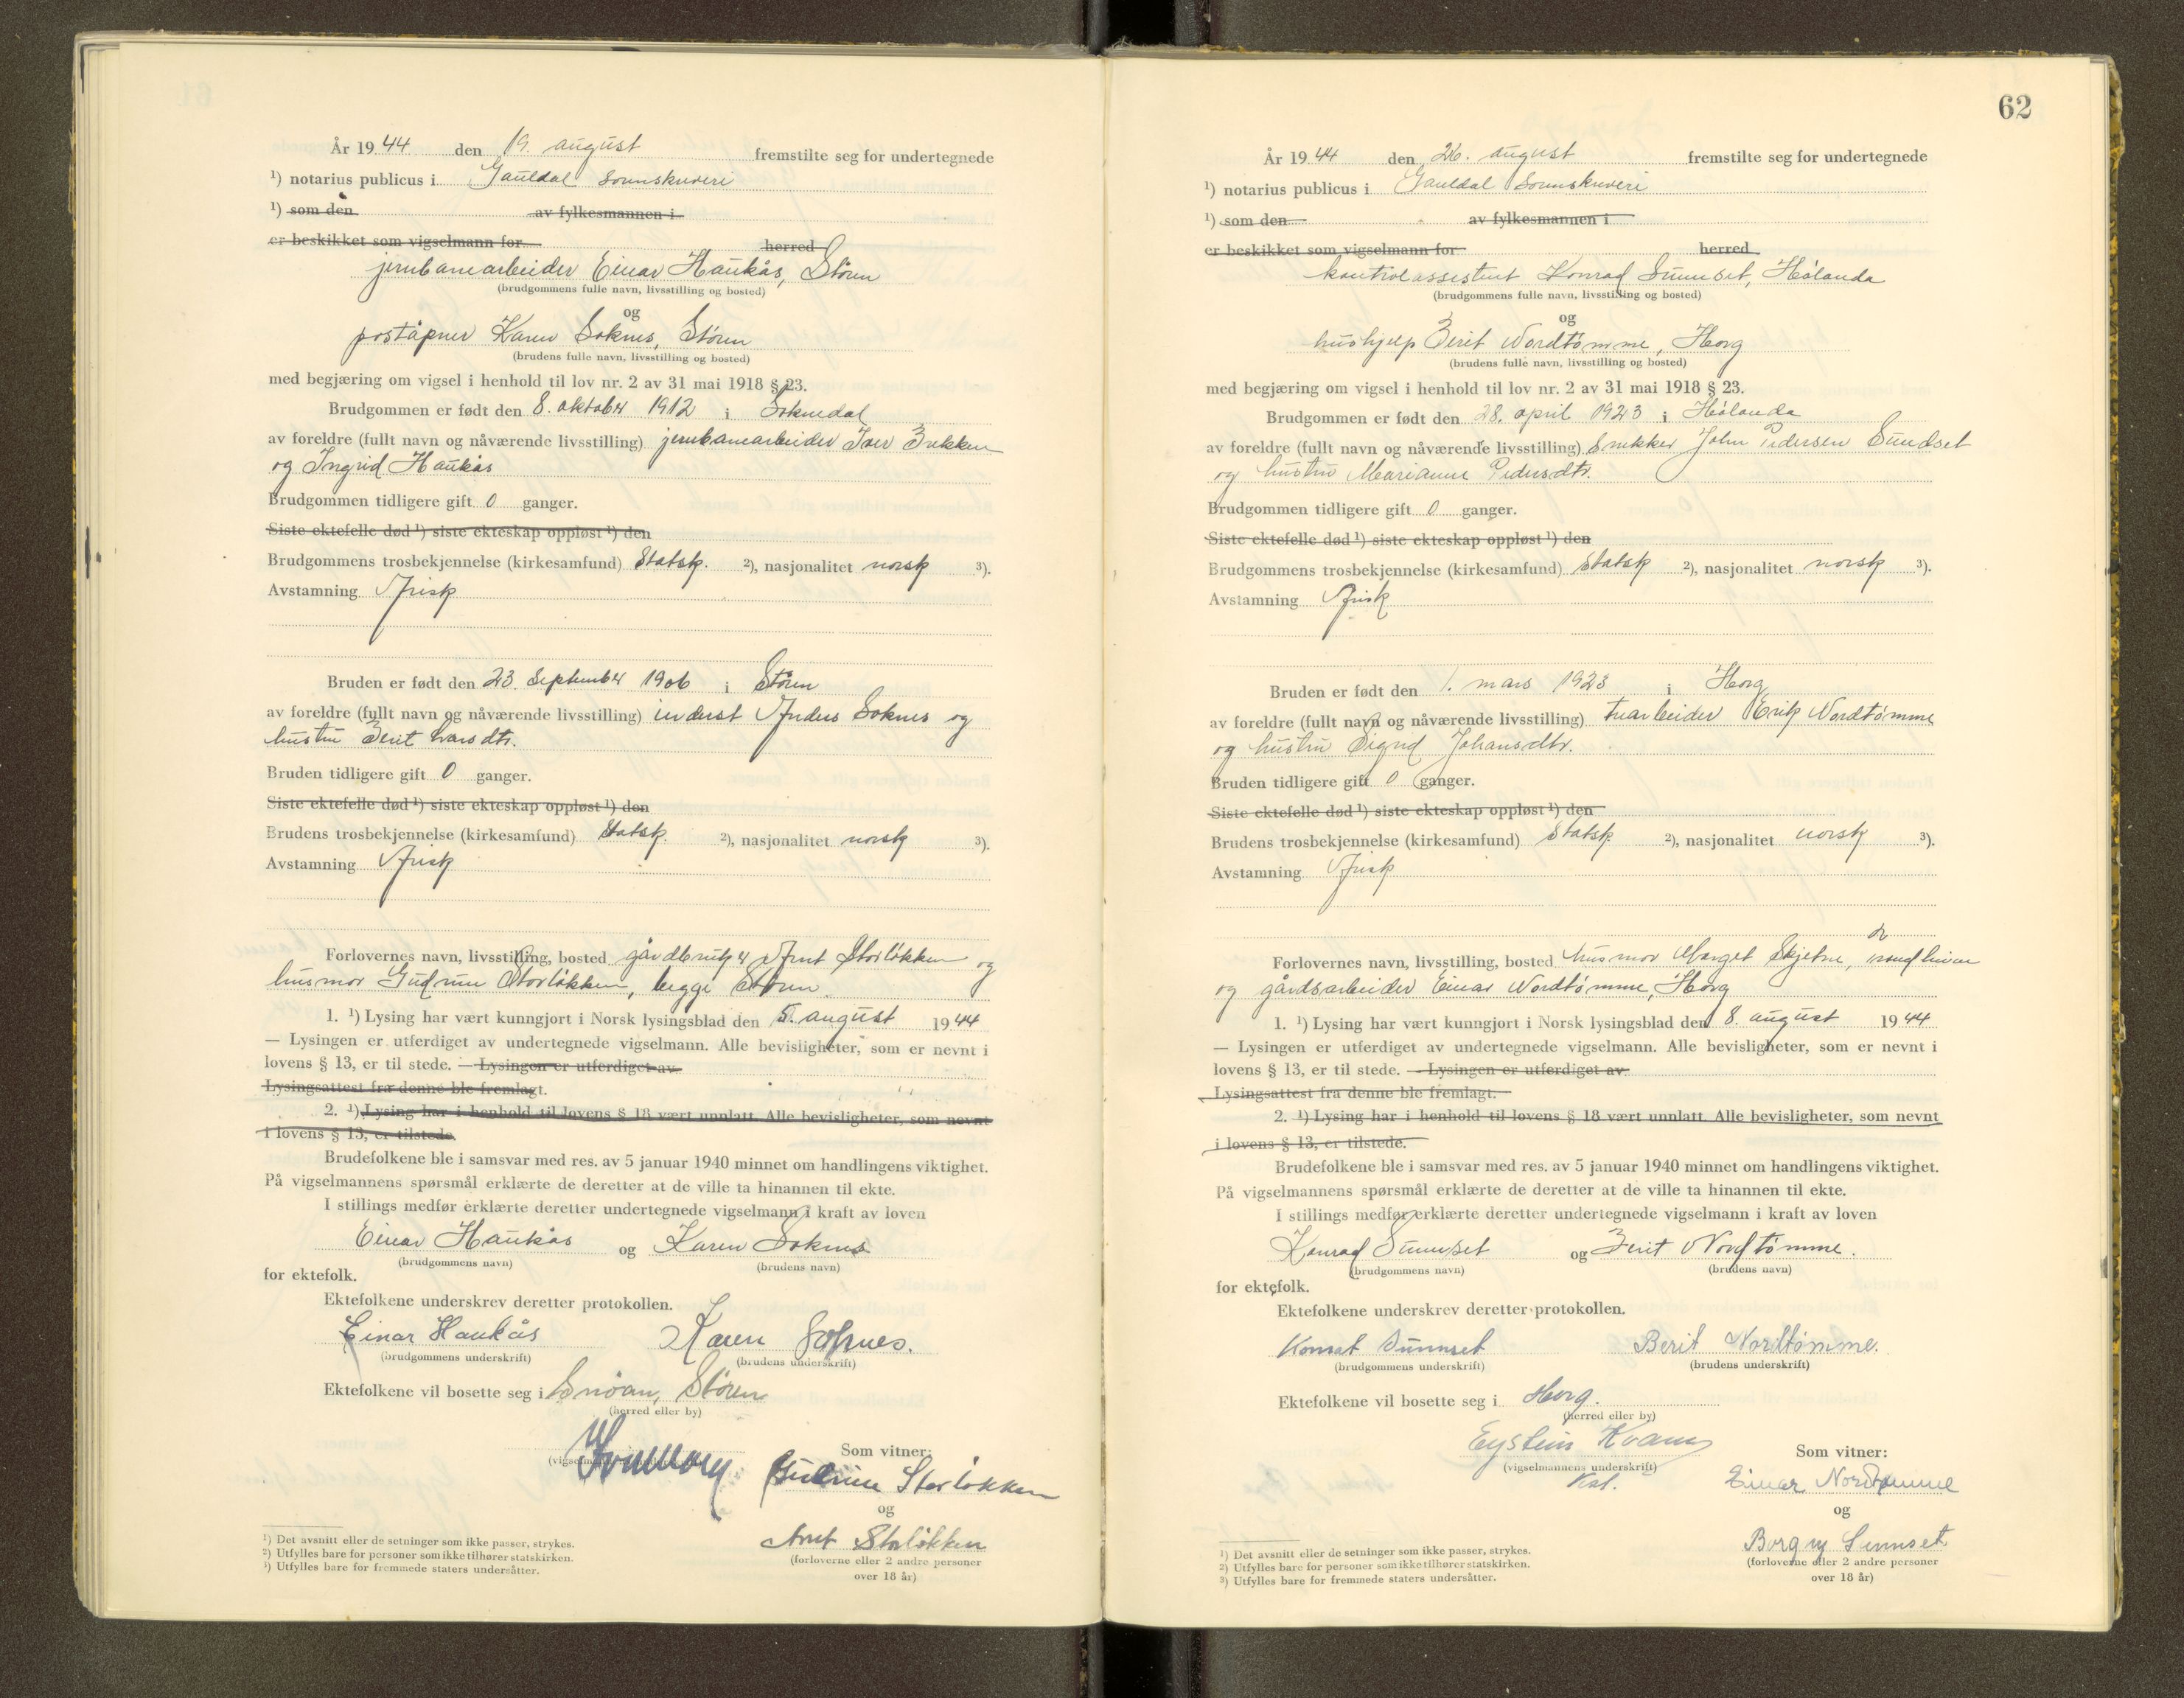 År 1944 den 19. august fremstilte seg for undertegnede
¹) notarius publicus i Gauldal sorenskriveri
¹) som den av fylkesmannen i
er beskikket som vigselmann for herred
jernbanearbeider Einar Haukås, Støren
(brudgommens fulle navn, livsstilling og bosted)
og
poståpner Karen Soknes, Støren
(brudens fulle navn, livsstilling og bosted)
med begjæring om vigsel i henhold til lov nr. 2 av 31 mai 1918 § 23.
Brudgommen er født den 8. oktober 1912 i Soknedal
av foreldre (fullt navn og nåværende livsstilling) jernbanearbeider Iver Brekken
og Ingrid Haukås
Brudgommen tidligere gift 0 ganger.
Siste ektefelle død ¹) siste ekteskap oppløst ¹) den
Brudgommens trosbekjennelse (kirkesamfund) Statsk. ²), nasjonalitet norsk ³).
Avstamning Arisk
Bruden er født den 23. September 1906 i Støren
av foreldre (fullt navn og nåværende livsstilling) inderst Anders Soknes og
hustru Berit Larsdtr.
Bruden tidligere gift 0 ganger.
Siste ektefelle død ¹) siste ekteskap oppløst ¹) den
Brudens trosbekjennelse (kirkesamfund) Statsk. ²), nasjonalitet norsk ³).
Avstamning Arisk
Forlovernes navn, livsstilling, bosted gårdbruker Arnt Storløkken og
husmor Gudrun Storløkken, begge Støren.
1. ¹) Lysing har vært kunngjort i Norsk lysingsblad den 5. august 1944
— Lysingen er utferdiget av undertegnede vigselmann. Alle bevisligheter, som er nevnt i
lovens § 13, er til stede. — Lysingen er utferdiget av
Lysingsattest fra denne ble fremlagt.
2. ¹) Lysing har i henhold til lovens § 18 vært unnlatt Alle bevisligheter, som nevnt
i lovens § 13, er tilstede.
Brudefolkene ble i samsvar med res. av 5 januar 1940 minnet om handlingens viktighet.
På vigselmannens spørsmål erklærte de deretter at de ville ta hinannen til ekte.
I stillings medfør erklærte deretter undertegnede vigselmann i kraft av loven
Einar Haukås og Karen Soknes
(brudgommens navn) (brudens navn)
for ektefolk.
Ektefolkene underskrev deretter protokollen.
Einar Haukås Karen Soknes.
(brudgommens underskrift) (brudens underskrift)
Ektefolkene vil bosette seg i Snøan, Støren
(herred eller by)
Som vitner:
Gudrun Storløkken
og
Arnt Storløkken
(forloverne eller 2 andre personer
over 18 år)
¹) Det avsnitt eller de setninger som ikke passer, strykes.
²) Utfylles bare for personer som ikke tilhører statskirken.
³) Utfylles bare for fremmede staters undersåtter.
62
År 1944 den 26. august fremstilte seg for undertegnede
¹) notarius publicus i Gauldal sorenskriveri
¹) som den av fylkesmannen i
er beskikket som vigselmann for herred
kontrolassistent Konrad Sunnset, Hølonda
(brudgommens fulle navn, livsstilling og bosted)
og
hushjelp Berit Nordtømme, Horg
(brudens fulle navn, livsstilling og bosted)
med begjæring om vigsel i henhold til lov nr. 2 av 31 mai 1918 § 23.
Brudgommen er født den 28. april 1923 i Hølonda
av foreldre (fullt navn og nåværende livsstilling) Snekker John Pedersen Sundset
og hustru Marianne Pedersdtr.
Brudgommen tidligere gift 0 ganger.
Siste ektefelle død ¹) siste ekteskap oppløst ¹) den
Brudgommens trosbekjennelse (kirkesamfund) Statsk ²), nasjonalitet norsk ³).
Avstamning Arisk
Bruden er født den 1. mars 1923 i Horg
av foreldre (fullt navn og nåværende livsstilling) trearbeider Erik Nordtømme
og hustru Sigrid Johansdtr.
Bruden tidligere gift 0 ganger.
Siste ektefelle død ¹) siste ekteskap oppløst ¹) den
Brudens trosbekjennelse (kirkesamfund) Statsk. ²), nasjonalitet norsk ³).
Avstamning Arisk
Forlovernes navn, livsstilling, bosted husmor Marget Skjetne, Trondheim
og gårdsarbeider Einar Nordtømme, Horg
1. ¹) Lysing har vært kunngjort i Norsk lysingsblad den 8. august 1944
— Lysingen er utferdiget av undertegnede vigselmann. Alle bevisligheter, som er nevnt i
lovens § 13, er til stede. — Lysingen er utferdiget av
Lysingsattest fra denne ble fremlagt.
2. ¹) Lysing har i henhold til lovens § 18 vært unnlatt Alle bevisligheter, som nevnt
i lovens § 13, er tilstede.
Brudefolkene ble i samsvar med res. av 5 januar 1940 minnet om handlingens viktighet.
På vigselmannens spørsmål erklærte de deretter at de ville ta hinannen til ekte.
I stillings medfør erklærte deretter undertegnede vigselmann i kraft av loven
Konrad Sunnset og Berit Nordtømme.
(brudgommens navn) (brudens navn)
for ektefolk.
Ektefolkene underskrev deretter protokollen.
Konrat Sunnset Berit Nordtømme.
(brudgommens underskrift) (brudens underskrift)
Ektefolkene vil bosette seg i Horg.
(herred eller by)
Eystein Kvam
(vigselmannens underskrift)
Kst.
Som vitner:
Einar Nordtømme
og
Borgny Sunnset
(forloverne eller 2 andre personer
over 18 år)
¹) Det avsnitt eller de setninger som ikke passer, strykes.
²) Utfylles bare for personer som ikke tilhører statskirken.
³) Utfylles bare for fremmede staters undersåtter.